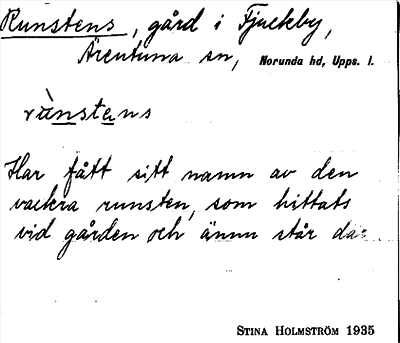 Runstens, gård i Fjuckby,
Ärentuna sn, Norunda hd, Upps. l.
rùnstens
Har fått sitt namn av den
vackra runsten, som hittats
vid gården och ännu står där.
STINA HOLMSTRÖM 1935